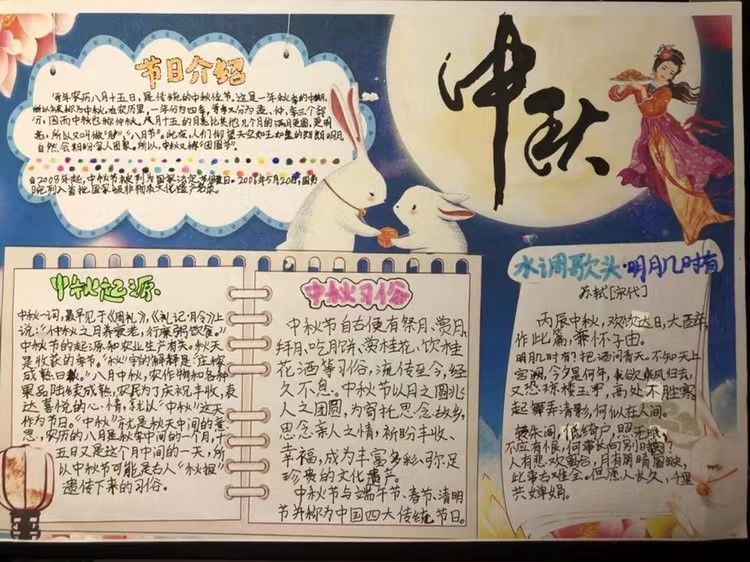 中秋
节日介绍
每年农历八月十五日，是传统的中秋佳节。这是一年秋季的中期，
所以被称为中秋。在农历里，一年分为四季，每季又分为孟、仲、季三个部
分，因而中秋也称仲秋。八月十五的月亮比其他几个月的满月更圆，更明
亮，所以又叫做“月夕”，“八月节”。此夜，人们仰望天空如玉如盘的朗朗明月，
自然会期盼家人团聚。所以，中秋又称“团圆节”。
自2008年起，中秋节被列为国家法定节假日。2006年5月20日，国务
院列入首批国家级非物质文化遗产名录。
中秋起源
中秋一词，最早见于《周礼》，《礼记·月令》上
说：“仲秋之月养衰老，行糜粥饮食。”
中秋节的起源和农业生产有关。秋天
是收获的季节。“秋”字的解释是：“庄稼
成熟曰秋。”八月中秋，农作物和各种
果品陆续成熟，农民为了庆祝丰收，表
达喜悦的心情，就以“中秋”这天
作为节日。“中秋”就是秋天中间的意
思，农历的八月是秋季中间的一个月，十
五日又是这个月中间的一天，所
以中秋节可能是古人“秋报”
遗传下来的习俗。
中秋习俗
中秋节自古便有祭月、赏月、
拜月、吃月饼、赏桂花、饮桂
花酒等习俗，流传至今，经
久不息。中秋节以月之圆兆
人之团圆，为寄托思念故乡，
思念亲人之情，祈盼丰收、
幸福，成为丰富多彩、弥足
珍贵的文化遗产。
中秋节与端午节、春节、清明
节并称为中国四大传统节日。
水调歌头·明月几时有
苏轼[宋代]
丙辰中秋，欢饮达旦，大醉，
作此篇，兼怀子由。
明月几时有？把酒问青天。不知天上
宫阙，今夕是何年。我欲乘风归去，
又恐琼楼玉宇，高处不胜寒。
起舞弄清影，何似在人间。
转朱阁，低绮户，照无眠。
不应有恨，何事长向别时圆？
人有悲欢离合，月有阴晴圆缺，
此事古难全。但愿人长久，千里
共婵娟。